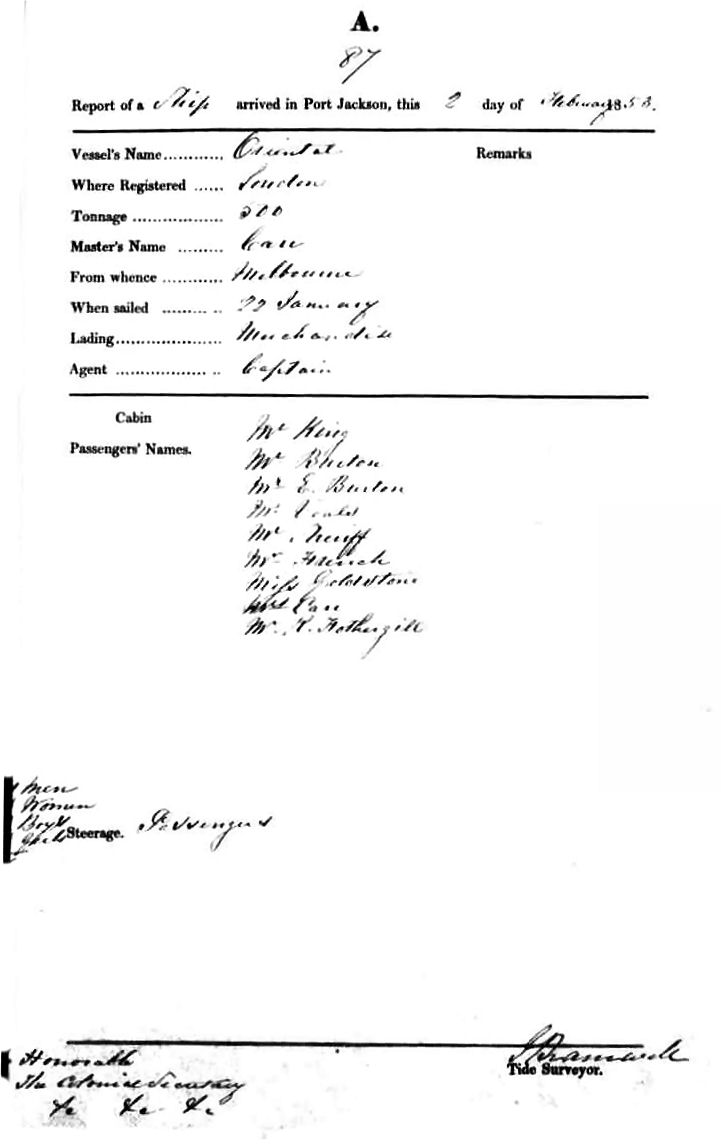 A.
87
Report of a Ship arrived in Port Jackson, this 2 day of February 1853.
Vessel's Name............ Oriental Remarks
Where Registered ...... London
Tonnage .................. 500
Master's Name ......... Carr
From whence ............ Melbourne
When sailed ......... .. 22 January
Lading..................... Merchandise
Agent .................. .. Captain
Cabin
Passengers' Names.
Mr King
Mr Burton
Mr E. Burton
Mr
Mr
Mr French
Miss Goldstone
Mrs Carr
Mr. R. Fothergill
Men
Women
Boys
Girls
Steerage. Passengers
J Bramwell
Tide Surveyor.
Honorable
The Colonial Secretary
&c &c &c